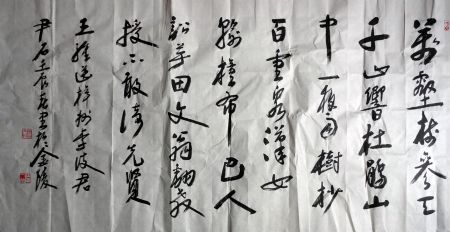 萬壑樹參天
千山響杜鵑山
中一夜雨樹杪
百重泉漢女
輸橦布巴人
訟芋田文翁翻教
授不敢倚先賢
王維送梓州李使君
尹石壬辰書於金陵